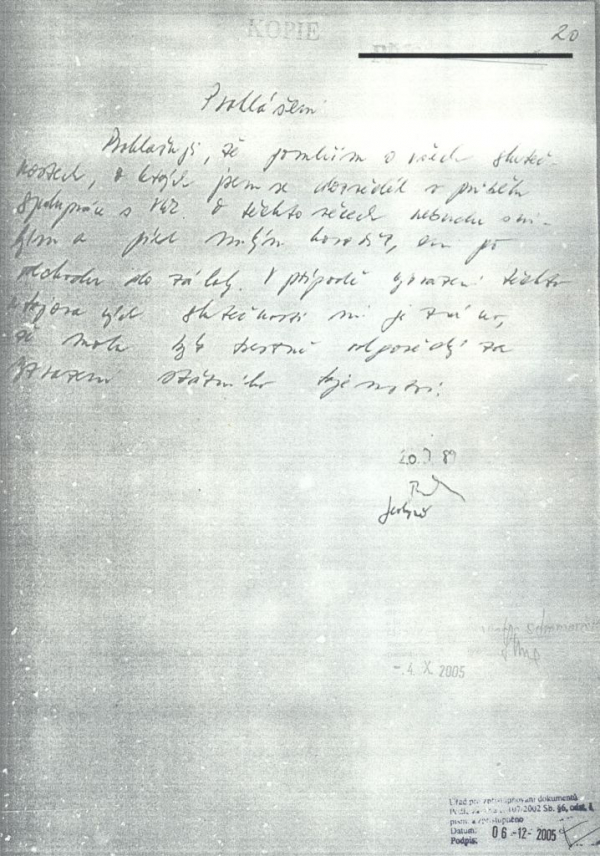 KOPIE
20
Prohlášení
Prohlašuji, že pomlčím o všech skuteč-
nostech, o kterých jsem se dozvěděl v průběhu
spolupráce s Vaz. O těchto věcech nebudu s ni-
kým a před nikým hovořit, ani po
odchodu do zálohy. V případě vyzrazení těchto
utajovaných skutečností mi je známo,
že mohu být trestně odpovědný za
vyzrazení státního tajemství.
20. 89
- 4. X. 2005
Úřad pro zpřístupňování dokumentů
107-2002 Sb. §6, odst.
zpřístupněno
Datum: 06-12-2005
Podpis: